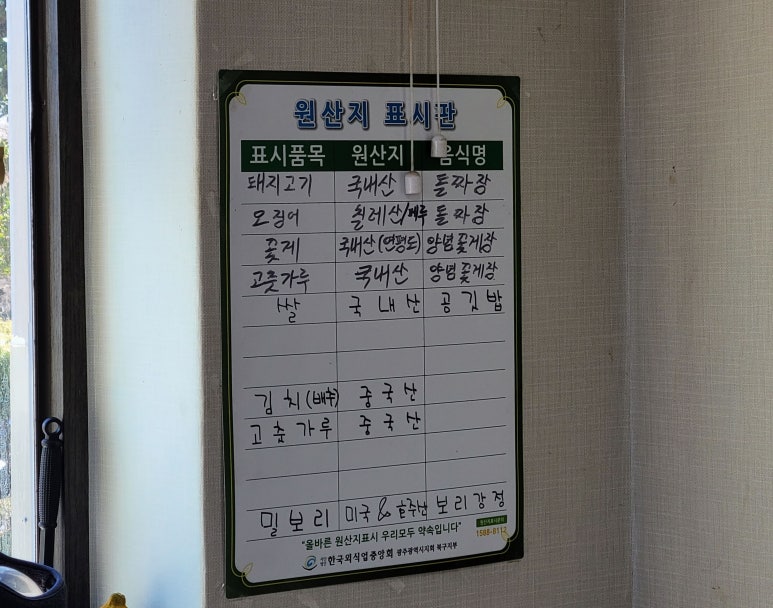 원산지 표시판
표시품목 원산지 음식명
돼지고기 국내산 돌짜장
오징어 칠레산/페루 돌짜장
꽃게 국내산(연평도) 양념꽃게장
고춧가루 국내산 양념꽃게장
쌀 국내산 공깃밥
김치(배추) 중국산
고춧가루 중국산
밀보리 미국 & 호주산 보리강정
"올바른 원산지표시 우리모두 약속입니다"
원산지표시문의
1588-8112
한국외식업중앙회 광주광역시지회 북구지부